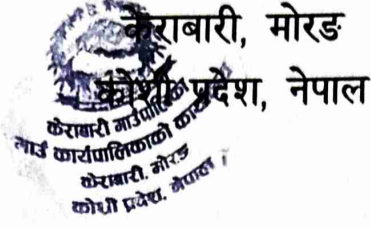 केराबारी, मोरङ
कोशी प्रदेश, नेपाल
केराबारी गाउँपालिका
गाउँ कार्यपालिकाको कार्यालय
केराबारी, मोरङ
कोशी प्रदेश, नेपाल ।